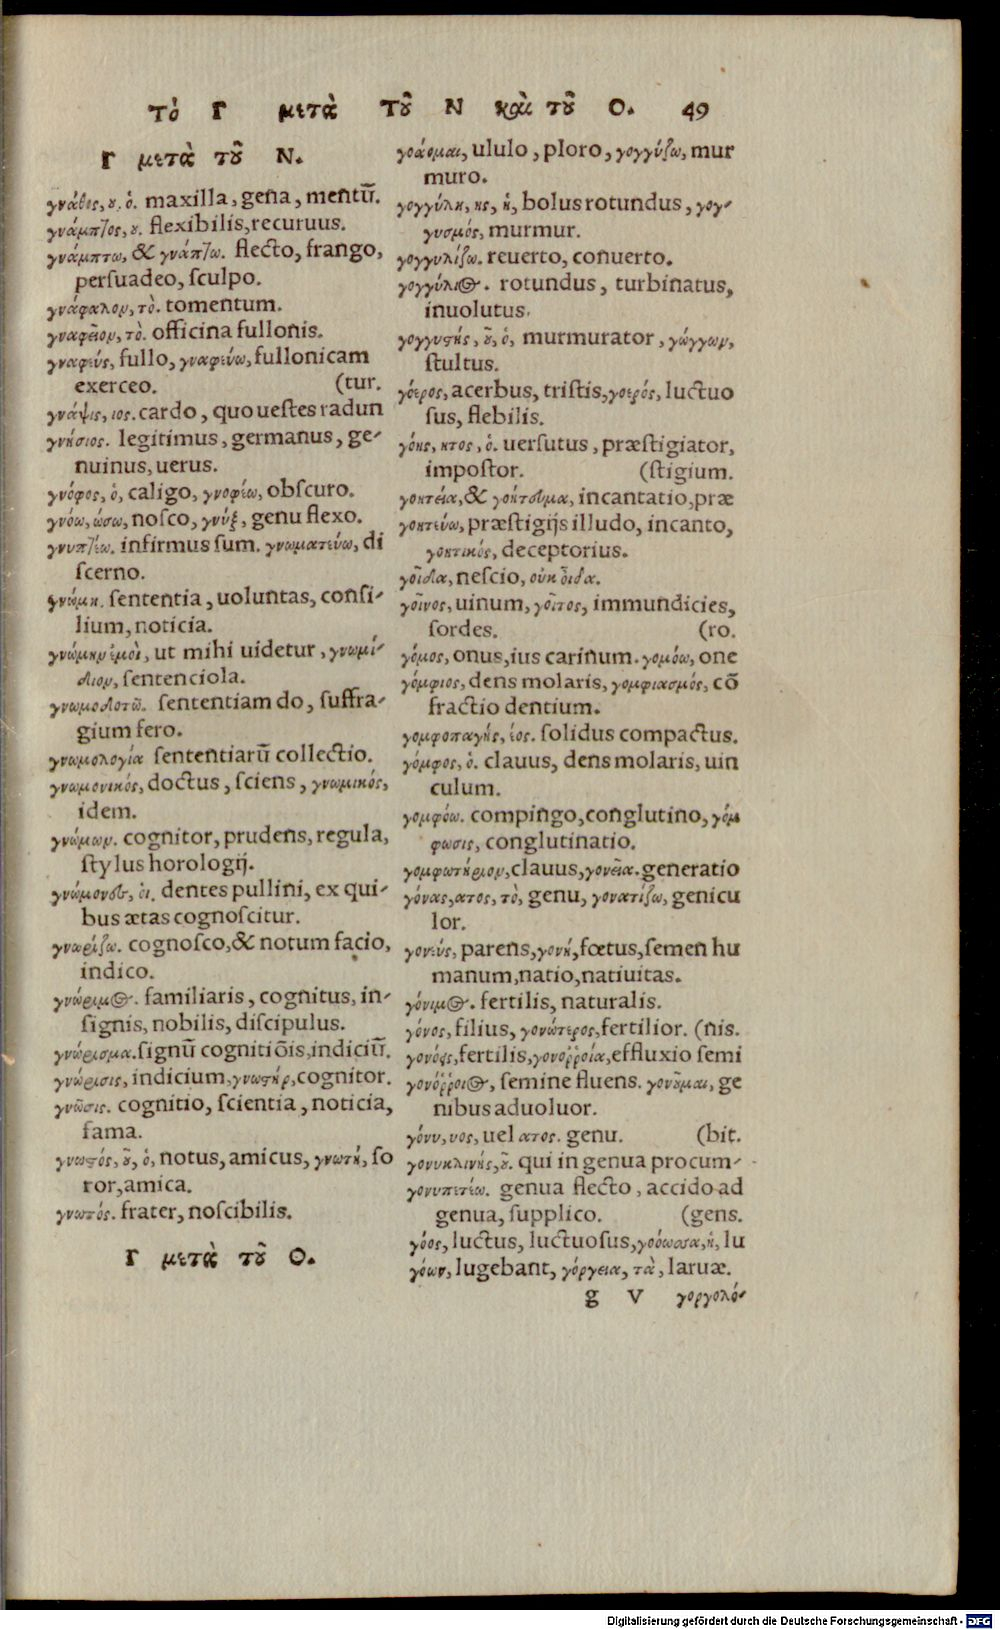 τὸ Γ μετὰ τοῦ Ν καὶ τοῦ Ο. 49
Γ μετὰ τοῦ Ν.
γνάθος, ου. ὁ. maxilla, gena, mentū.
γνάμπτος, ου. flexibilis, recuruus.
γνάμπτω, & γνάπτω. flecto, frango,
persuadeo, sculpo.
γνάφαλον, τὸ. tomentum.
γναφεῖον, τὸ. officina fullonis.
γναφεύς, fullo, γναφεύω, fullonicam
exerceo. (tur.
γνάψις, ιος. cardo, quo uestes radun
γνήσιος. legitimus, germanus, ge-
nuinus, uerus.
γνόφος, ὁ, caligo, γνοφέω, obscuro.
γνόω, ώσω, nosco, γνύξ, genu flexo.
γνυπτέω. infirmus sum. γνωματεύω, di
scerno.
γνώμη. sententia, uoluntas, consi-
lium, noticia.
γνώμην ἐμοὶ, ut mihi uidetur, γνωμί-
διον, sentenciola.
γνωμοδοτῶ. sententiam do, suffra-
gium fero.
γνωμολογία sententiarū collectio.
γνωμονικός, doctus, sciens, γνωμικός,
idem.
γνώμων. cognitor, prudens, regula,
stylus horologij.
γνώμονες, οἱ. dentes pullini, ex qui-
bus ætas cognoscitur.
γνωρίζω. cognosco, & notum facio,
indico.
γνώριμος. familiaris, cognitus, in-
signis, nobilis, discipulus.
γνώρισμα. signū cognitiōis, indiciū.
γνώρισις, indicium, γνωστήρ, cognitor.
γνῶσις. cognitio, scientia, noticia,
fama.
γνωστός, οῦ, ὁ, notus, amicus, γνωτή, so
ror, amica.
γνωτός. frater, noscibilis.
Γ μετὰ τοῦ Ο.
γοάομαι, ululo, ploro, γογγύζω, mur
muro.
γογγύλη, ης, ἡ, bolus rotundus, γογ-
γυσμός, murmur.
γογγυλίζω. reuerto, conuerto.
γογγύλιος. rotundus, turbinatus,
inuolutus.
γογγυστής, οῦ, ὁ, murmurator, γώγγων,
stultus.
γόερος, acerbus, tristis, γοερός, luctuo
sus, flebilis.
γόης, ητος, ὁ. uersutus, præstigiator,
impostor. (stigium.
γοητεία, & γοήτευμα, incantatio, præ
γοητεύω, præstigijs illudo, incanto,
γοητικός, deceptorius.
γοῖδα, nescio, οὐκ οἶδα.
γοῖνος, uinum, γοῖτος, immundicies,
sordes. (ro.
γόμος, onus, ius carinum. γομόω, one
γόμφιος, dens molaris, γομφιασμός, cō
fractio dentium.
γομφοπαγής, έος. solidus compactus.
γόμφος, ὁ. clauus, dens molaris, uin
culum.
γομφόω. compingo, conglutino, γόμ
φωσις, conglutinatio.
γομφωτήριον, clauus, γονεία. generatio
γόνας, ατος, τὸ, genu, γονατίζω, genicu
lor.
γονεύς, parens, γονή, fœtus, semen hu
manum, natio, natiuitas.
γόνιμος. fertilis, naturalis.
γόνος, filius, γονώτερος, fertilior. (nis.
γονόεις, fertilis, γονόῤῥοία, effluxio semi
γονόῤῥοιος, semine fluens. γονοῦμαι, ge
nibus aduoluor.
γόνυ, υος, uel ατος. genu. (bit.
γονυκλινής, οῦ. qui in genua procum-
γονυπετέω. genua flecto, accido ad
genua, supplico. (gens.
γόος, luctus, luctuosus, γοόωσα, ἡ, lu
γόων, lugebant, γόργεια, τὰ, laruæ.
g v γοργολό-
Digitalisierung gefördert durch die Deutsche Forschungsgemeinschaft - DFG